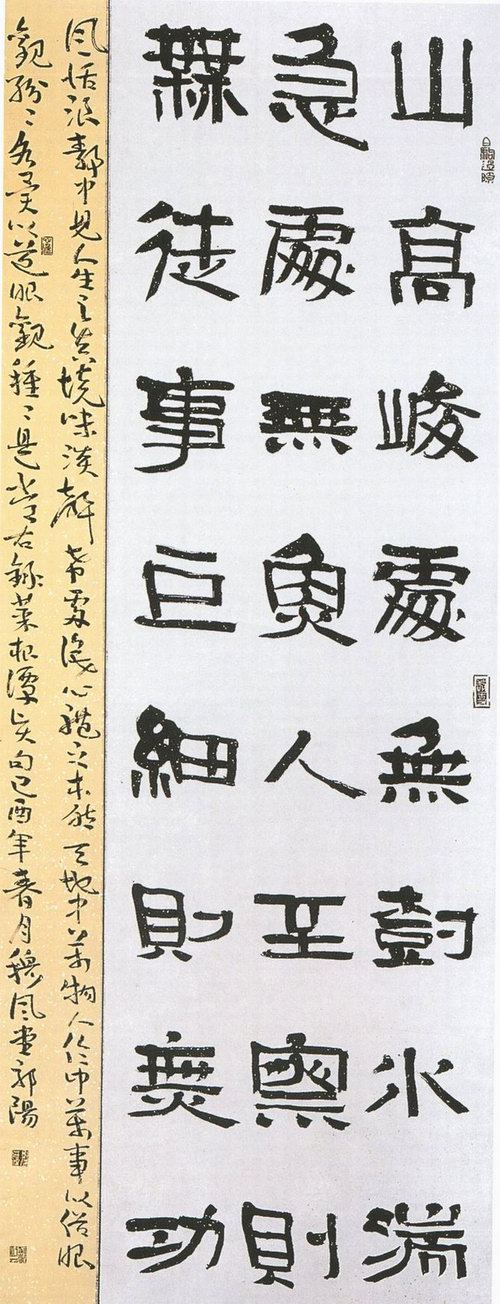 山高峻處無尌水湍
急處無魚人至察則
無徒事巨細則無功
風恬浪靜中見人生之真境味淡聲希處識心體之本然天地中萬物人倫中萬事以俗眼
觀紛〻各異以道眼觀種〻是常右錄菜根潭美句己酉年春月穆風堂郭陽